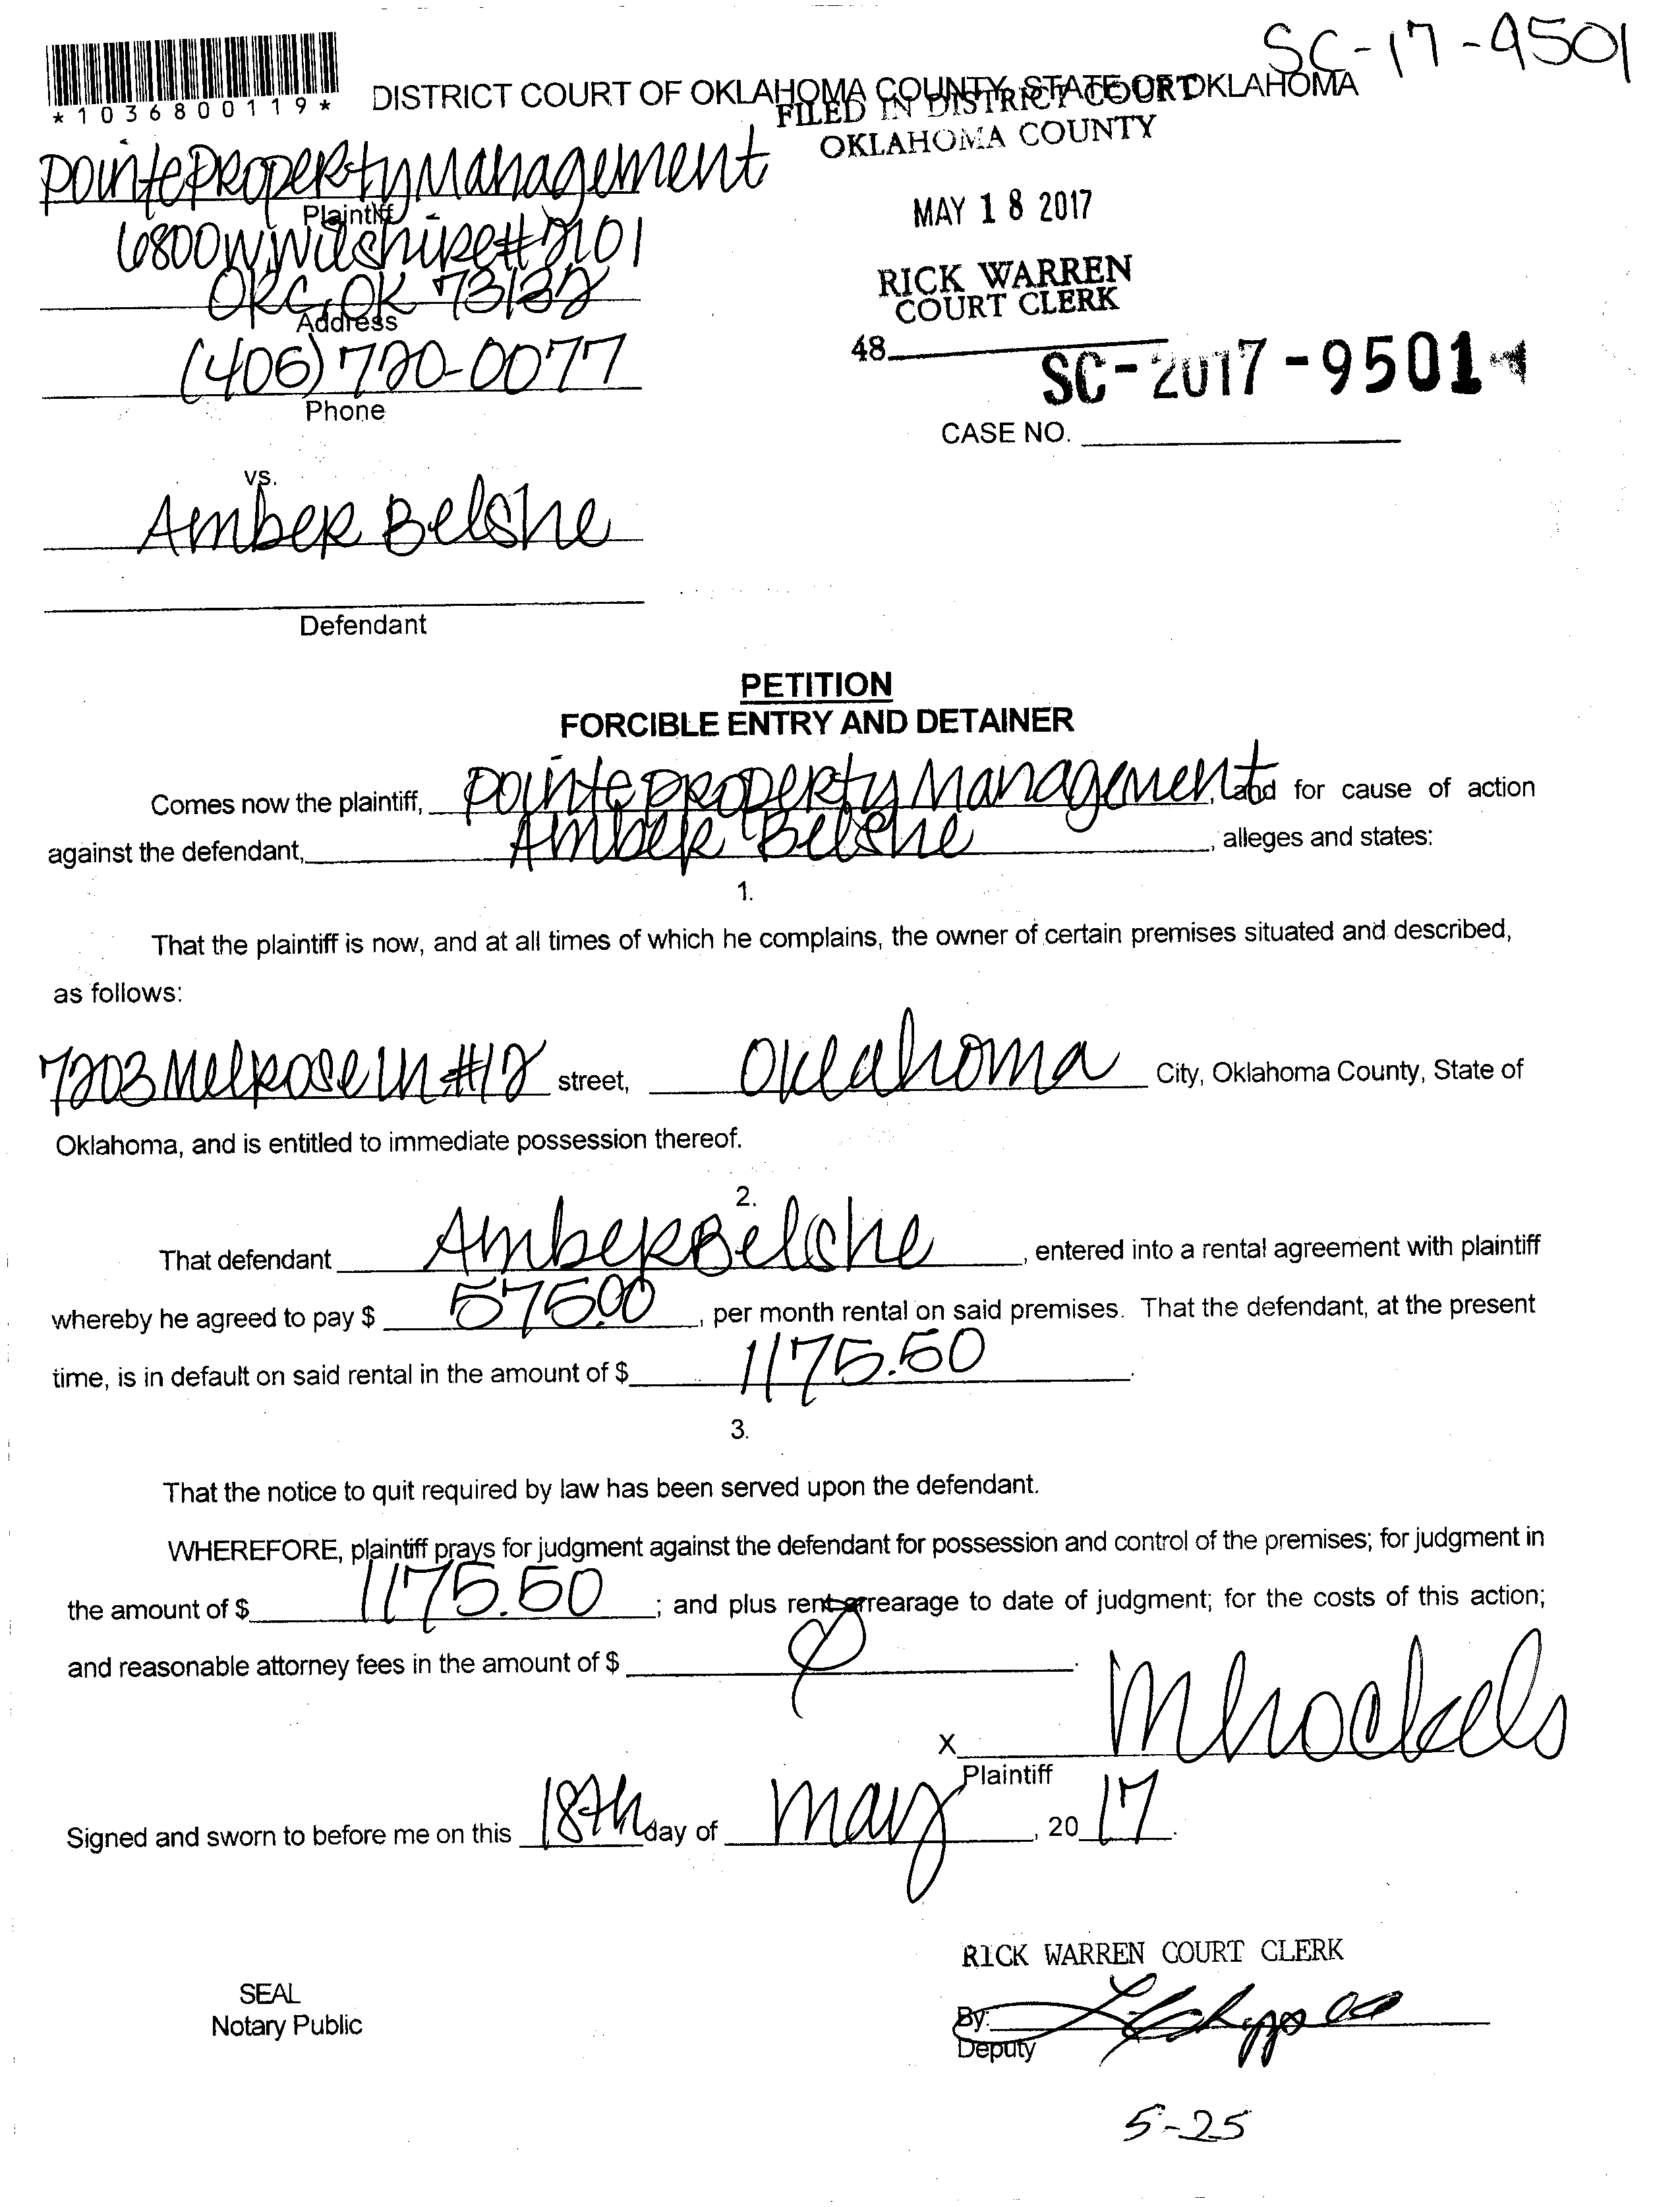 SC-17-9501
*1036800119*
DISTRICT COURT OF OKLAHOMA COUNTY, STATE OF OKLAHOMA
FILED IN DISTRICT COURT
OKLAHOMA COUNTY
Pointe Property Management
Plaintiff
6800 W Wilshire #2101
OKC, OK 73132
Address
(406) 720-0077
Phone
MAY 18 2017
RICK WARREN
COURT CLERK
48
SC-2017-9501
CASE NO.
vs.
Amber Belshe
Defendant
PETITION
FORCIBLE ENTRY AND DETAINER
Comes now the plaintiff, Pointe Property Management, and for cause of action
against the defendant, Amber Belshe, alleges and states:
1.
That the plaintiff is now, and at all times of which he complains, the owner of certain premises situated and described,
as follows:
7203 Melrose ln #12 street, Oklahoma City, Oklahoma County, State of
Oklahoma, and is entitled to immediate possession thereof.
2.
That defendant Amber Belshe, entered into a rental agreement with plaintiff
whereby he agreed to pay $ 575.00, per month rental on said premises. That the defendant, at the present
time, is in default on said rental in the amount of $ 1175.50.
3.
That the notice to quit required by law has been served upon the defendant.
WHEREFORE, plaintiff prays for judgment against the defendant for possession and control of the premises; for judgment in
the amount of $ 1175.50; and plus rent arrearage to date of judgment; for the costs of this action;
and reasonable attorney fees in the amount of $
X
Plaintiff
Signed and sworn to before me on this 18th day of May, 2017.
RICK WARREN COURT CLERK
SEAL
Notary Public
By:
Deputy
5-25